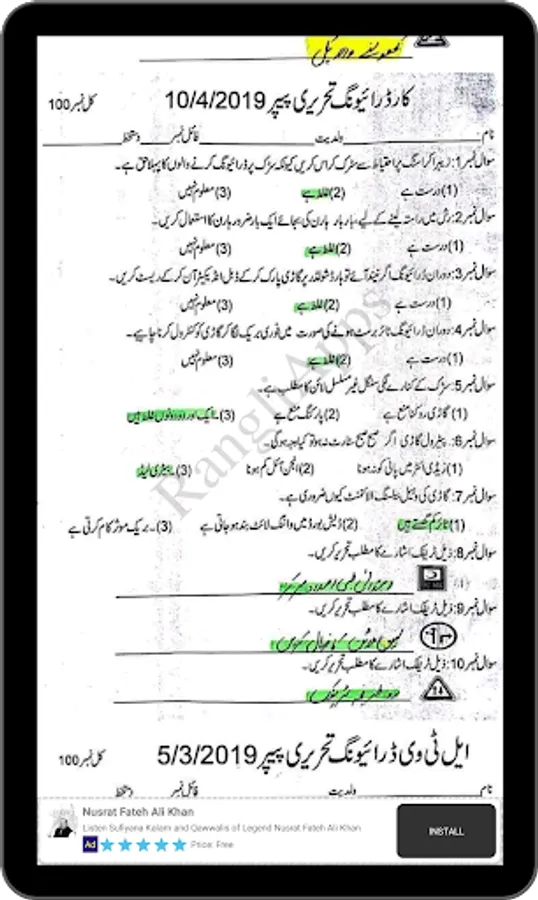 کار ڈرائیونگ تحریری پیپر 10/4/2019 کل نمبر 100
نام ولدیت فائل نمبر دستخط
سوال نمبر 1: زیبرا کراسنگ پر احتیاط سے سڑک کراس کریں کیونکہ سڑک پر ڈرائیونگ کرنے والوں کا پہلا حق ہے۔
(1) درست ہے (2) غلط ہے (3) معلوم نہیں
سوال نمبر 2: رش میں راستہ لینے کے لیے، بار بار ہارن کی بجائے ایک بار ضرور ہارن کا استعمال کریں۔
(1) درست ہے (2) غلط ہے (3) معلوم نہیں
سوال نمبر 3: دوران ڈرائیونگ اگر نیند آئے تو ہارڈ شولڈر پر گاڑی پارک کر کے ڈبل انڈیکیٹر آن کر کے ریسٹ کریں۔
(1) درست ہے (2) غلط ہے (3) معلوم نہیں
سوال نمبر 4: دوران ڈرائیونگ ٹائر برسٹ ہونے کی صورت میں فوری بریک لگا کر گاڑی کو کنٹرول کرنا چاہیے۔
(1) درست ہے (2) غلط ہے (3) معلوم نہیں
سوال نمبر 5: سڑک کے کنارے لگی سنگل غیر مسلسل لائن کا مطلب ہے۔
(1) گاڑی روکنا منع ہے (2) پارکنگ منع ہے (3)۔ ایک اور دو دونوں غلط ہیں
سوال نمبر 6: پیٹرول گاڑی اگر صبح صبح سٹارٹ نہ ہو تو کیا وجہ ہو گی۔
(1) ریڈی ایٹر میں پانی کو نہ ہونا (2) انجن آئل کم ہونا (3)۔ بیٹری لیڈ
سوال نمبر 7: گاڑی کی وہیل بیلنسنگ الائنمنٹ کیوں ضروری ہے۔
(1) ٹائر کم گھستے ہیں (2) ڈیش بورڈ میں وارننگ لائٹ بند ہو جاتی ہے (3)۔ بریک موثر کام کرتی ہے
سوال نمبر 8: ذیل ٹریفک اشارے کا مطلب تحریر کریں۔
(1)
سوال نمبر 9: ذیل ٹریفک اشارے کا مطلب تحریر کریں۔
سوال نمبر 10: ذیل ٹریفک اشارے کا مطلب تحریر کریں۔
دو طرفہ ٹریفک
ایل ٹی وی ڈرائیونگ تحریری پیپر 5/3/2019 کل نمبر 100
نام ولدیت فائل نمبر دستخط
RangliApps
Nusrat Fateh Ali Khan
Listen Sufiyana Kalam and Qawwalis of Legend Nusrat Fateh Ali Khan
Ad Price: Free
INSTALL